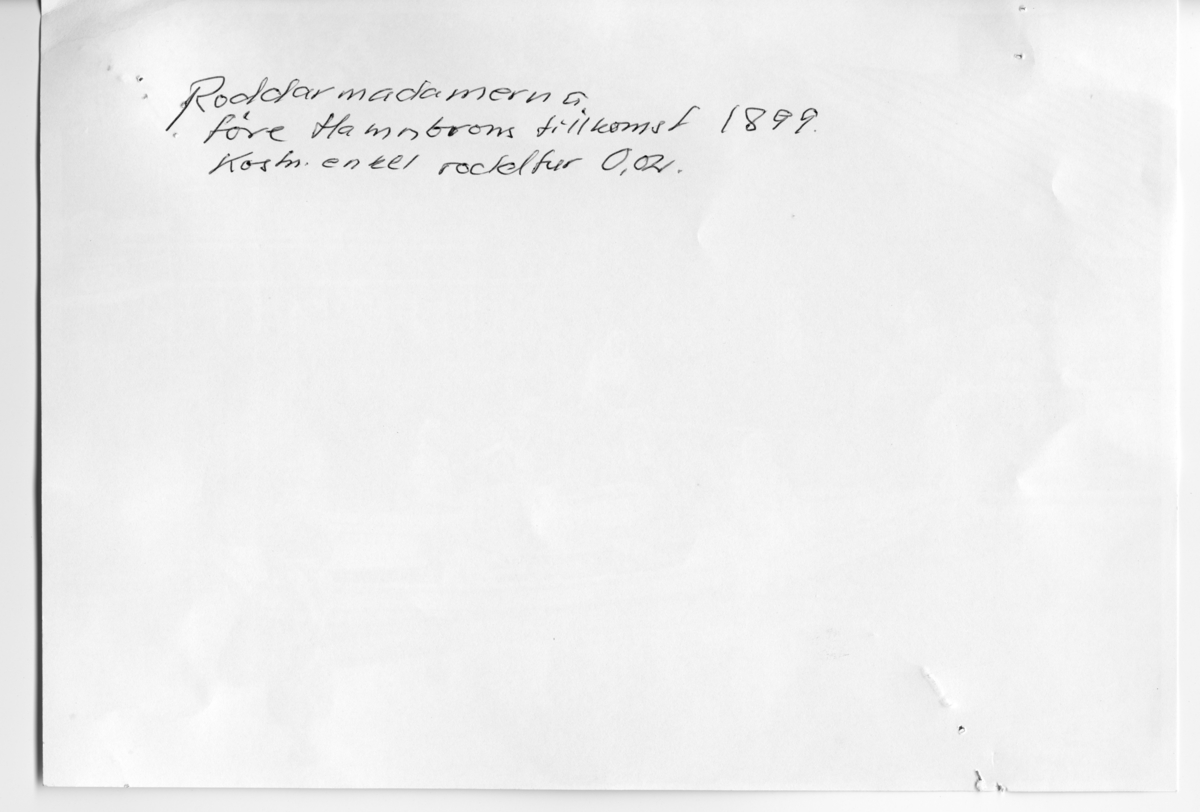 Roddarmadamerna
före Hamnbrons tillkomst 1899.
Kostn. enkel roddtur 0,02.